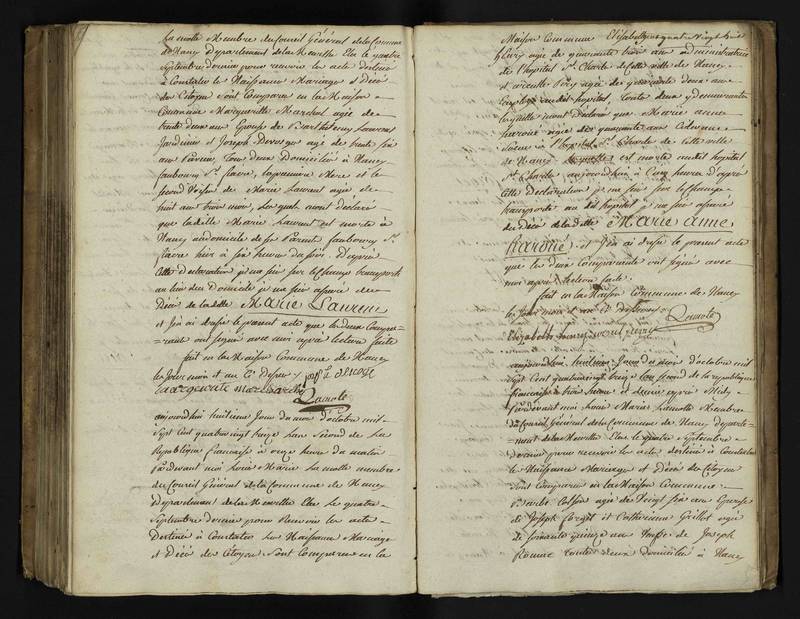 La motte Membre du Conseil Général de la Commune
de Nancy Département de la Meurthe Elu le quatre
Septembre dernier pour recevoir les acte destiné
à Constater les Naissance Mariage et Décé
des Citoyen Sont Comparu en la Maison
Commune Margueritte Marchal agée de
trente deux ans Epouse de Barthelemy Laurent
Jardinier et Joseph agé de trente
ans tous deux Domicilié à Nancy
faubourg St. fiacre, la premiere Mere et le
second Voisin de Marie Laurent agée de
huit ans trois mois, Lesquels mont déclaré
que ladite Marie Laurent est morte à
Nancy au domicile de ses Parents faubourg St.
fiacre hier à six heures du soir. D'après
Cette déclaration je me suis sur le Champ transporté
au lieu du Domicile je me suis assuré du
Décé de ladite Marie Laurent
et j'en ai dressé le présent acte que les deux Compa-
-rants ont signé avec moi après lecture faite
fait en la Maison Commune de Nancy
les Jour mois et an
margueritte marchal
Lamotte
aujourdhui huitieme Jour du mois d'octobre mil
Sept Cent quatre vingt treize L'an Second de La
République française à onze heures du matin
Pardevant moi Louis Marie La motte membre
du Conseil Général de la Commune de Nancy
Département de la Meurthe Elu Le quatre
Septembre dernier pour Recevoir les acte
Destiné à Constater Les Naissance Mariage
et Décé des Citoyen Sont Comparu en la
Maison Commune Elisabeth
henry agée de quarante trois ans administratrice
de l'hopital St. Charle de cette ville de Nancy
et agée de quarante deux ans
audit hopital, toute deux y demeurante
Lesquelle mont Déclaré que Marie anne
agée de quarante ans Citoyenne
Soeur à l'hopital St. Charle de Cette ville
de Nancy est morte audit hopital
St. Charle aujourdhuy à Cinq heures D'après
Cette Déclaration je me suis sur le Champ
transporté au dit hopital je me suis assuré
du Décé de ladite Marie anne
et j'en ai dressé le present acte
que les deux Comparante ont signé avec
moi après Lecture faite.
fait en la Maison Commune de Nancy
les Jour mois et an
Lamotte
Elizabeth henry
aujourdhui huitieme Jour du mois d'octobre mil
Sept Cent quatre vingt treize Lan Second de la République
francaise à trois heures et demie après Midy
Pardevant moi Louis Marie Lamotte Membre
du Conseil Général de la Commune de Nancy Departe-
ment de la Meurthe Elu le quatre Septembre
dernier pour recevoir les acte destiné à Constater
les Naissance Mariage et Décé des Citoyen
Sont Comparu en la Maison Commune
agée de Vingt Six ans Epouse
de Joseph et Catherine Grillot agée
de soixante quinze ans de Joseph
toute deux domicilié à Nancy